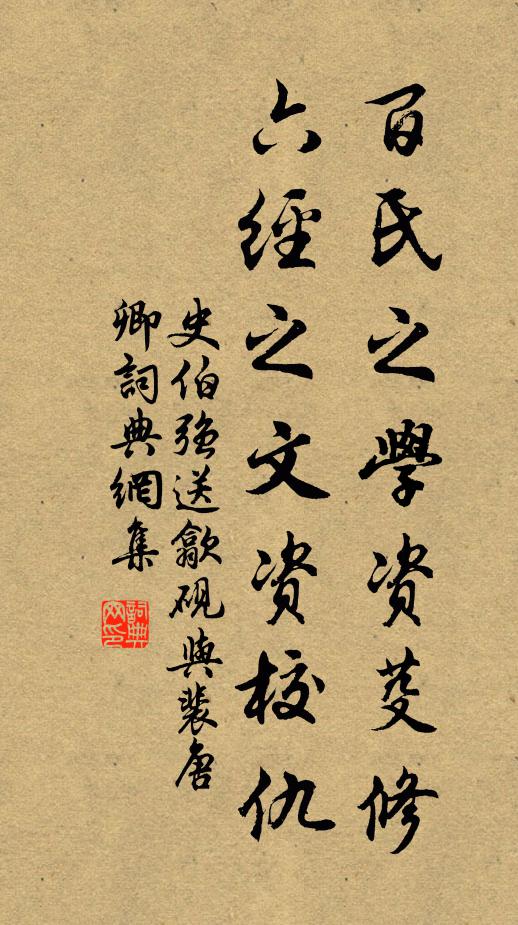 百氏之學资芟修
六經之文资校仇
史伯强送歙硯與裴唐
卿詞典網集
詞典网印